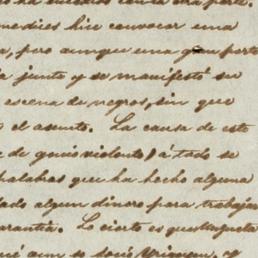 medies hice convocar una
, pero aunque una gran parte
a junta y se manifestó su
escena de negros, sin que
o el asunto. La causa de esto
e de genio violento) á todo se
palabras que ha hecho alguna
dado algun dinero para trabajar
arantia. Lo cierto es que
aun se